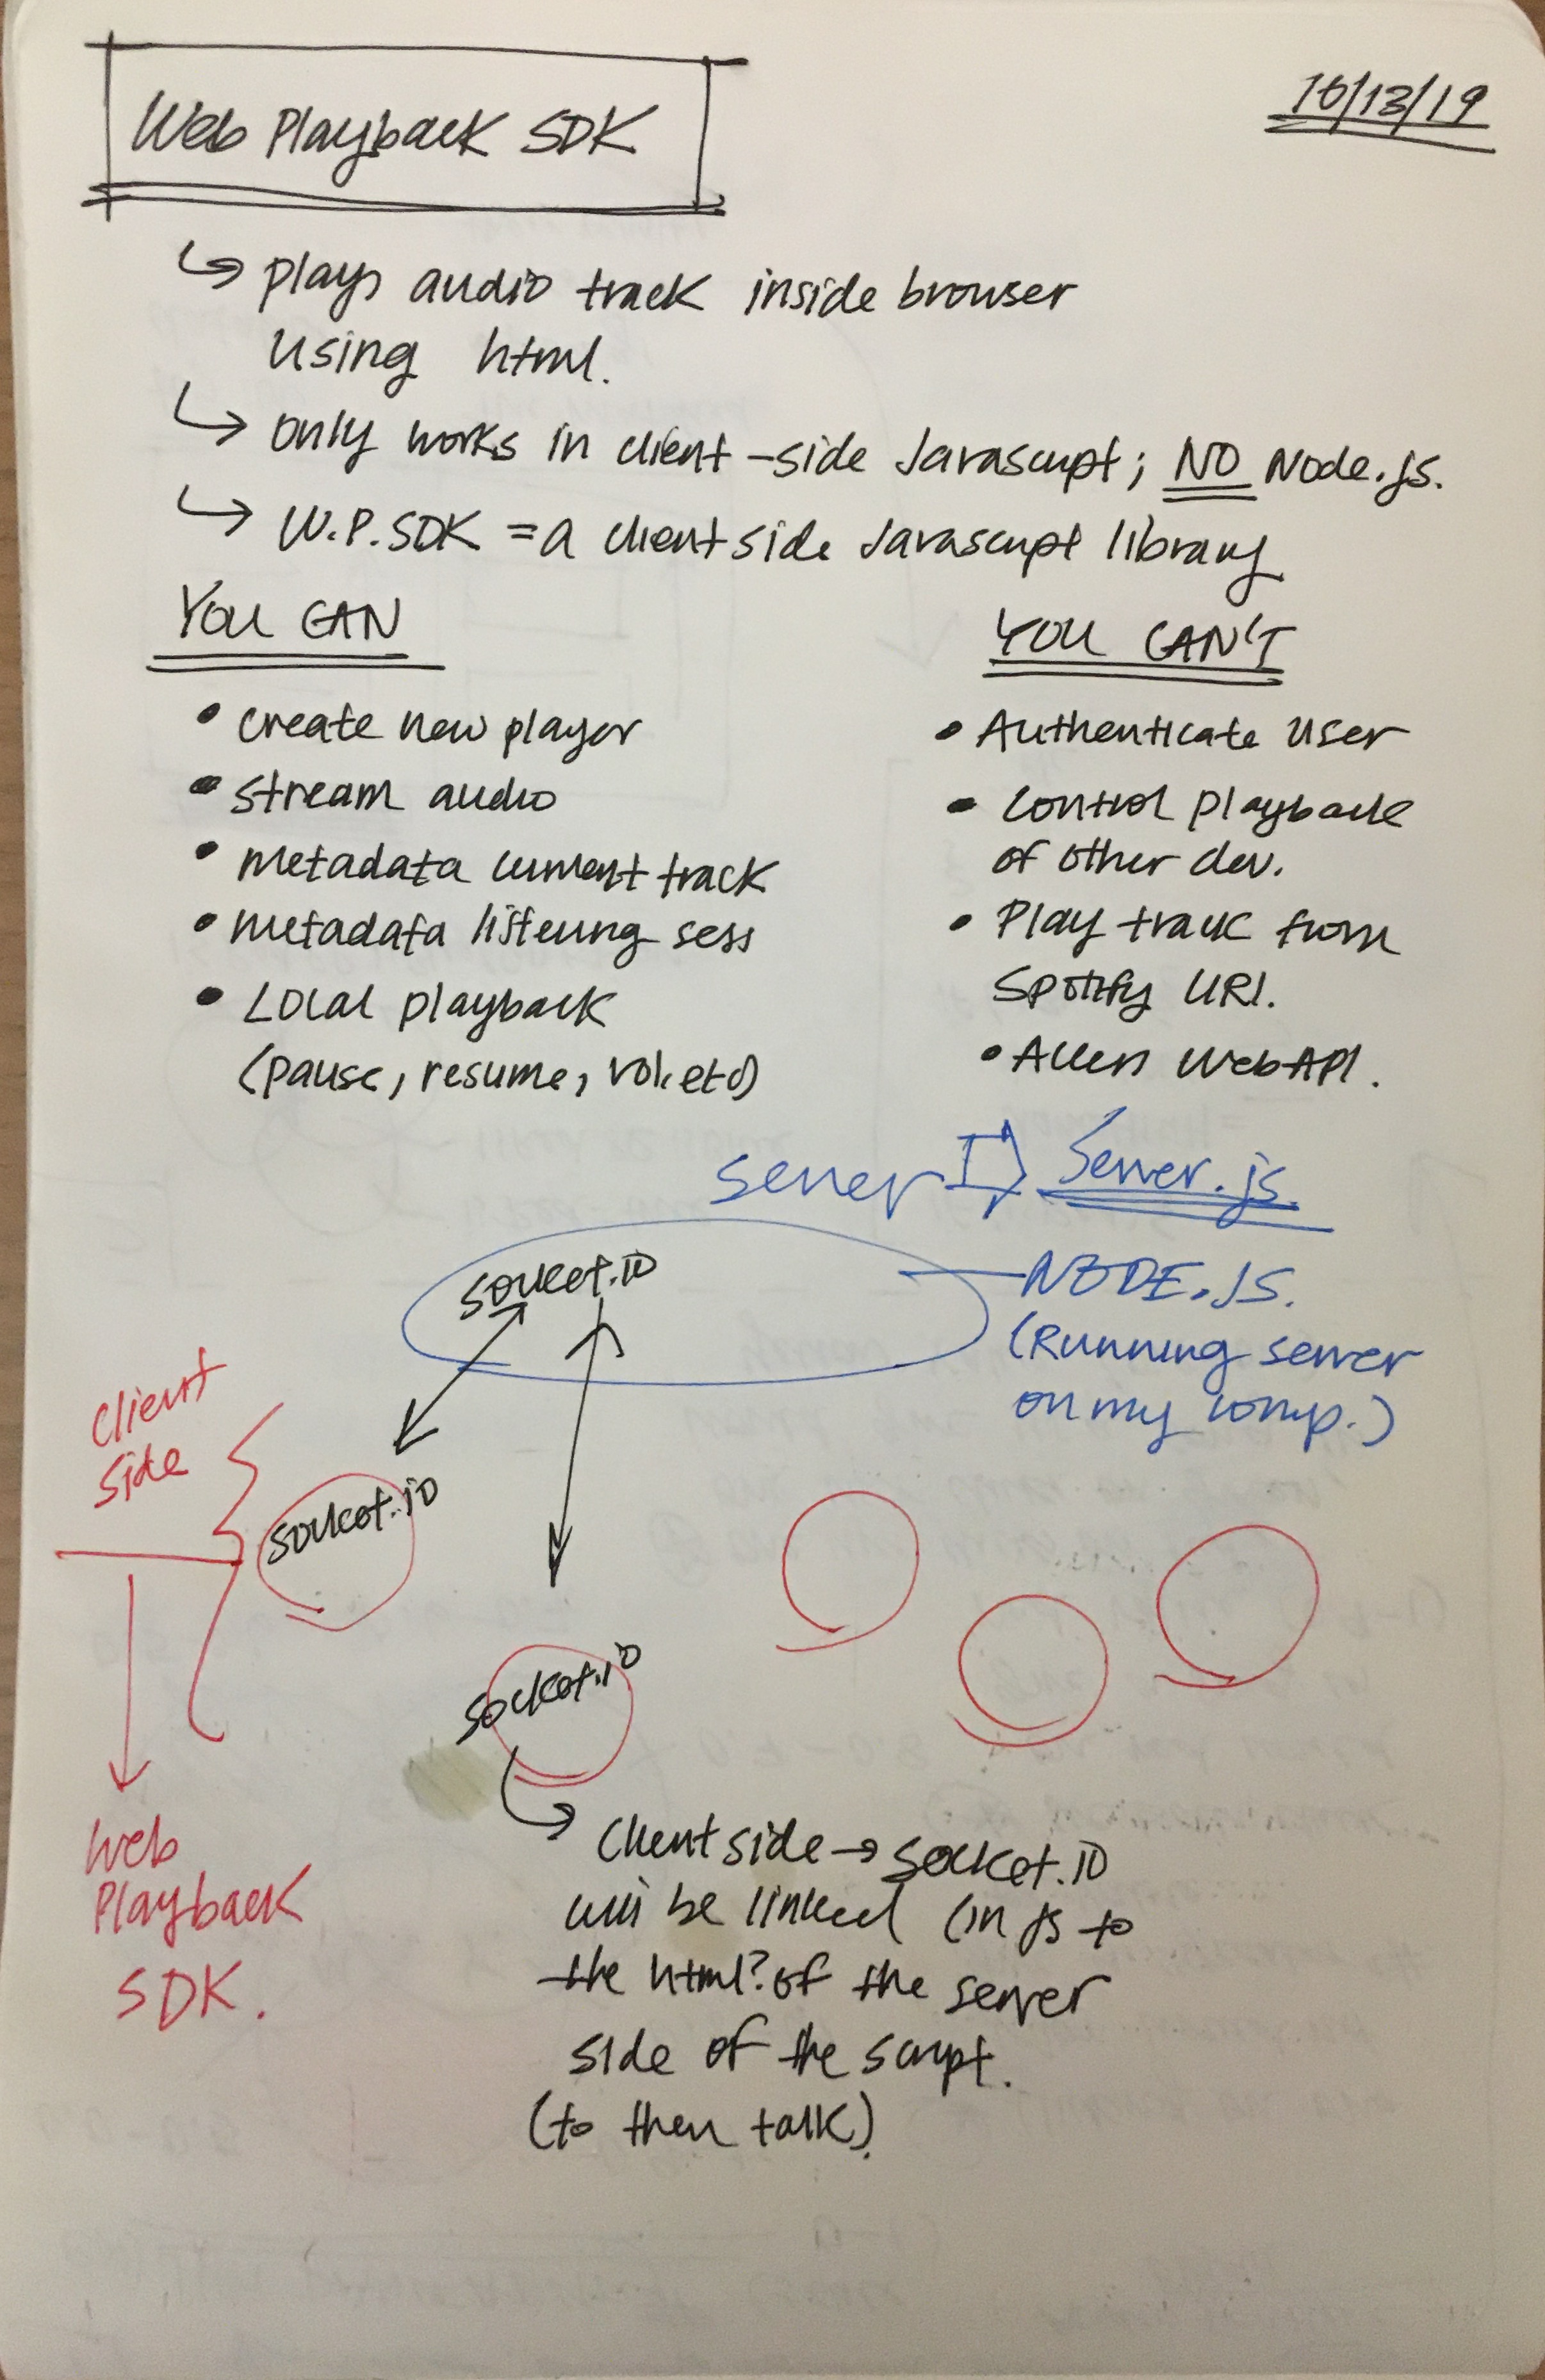 Web Playback SDK
10/13/19
plays audio track inside browser
using html.
only works in client-side Javascript; NO Node.js.
W.P.SDK = a client side Javascript library
YOU CAN
• create new player
• stream audio
• metadata current track
• metadata listening sess
• Local playback
(pause, resume, vol. etc)
YOU CAN'T
• Authenticate User
• Control playback
of other dev.
• Play track from
Spotify URI.
• Access WebAPI.
server ⇨ Server.js
socket.io
NODE.JS.
(Running server
on my comp.)
Client
side
socket.io
socket.io
Web
Playback
SDK.
Client side → socket.io
will be linked (in js to
the html? of the server
side of the script.
(to then talk)